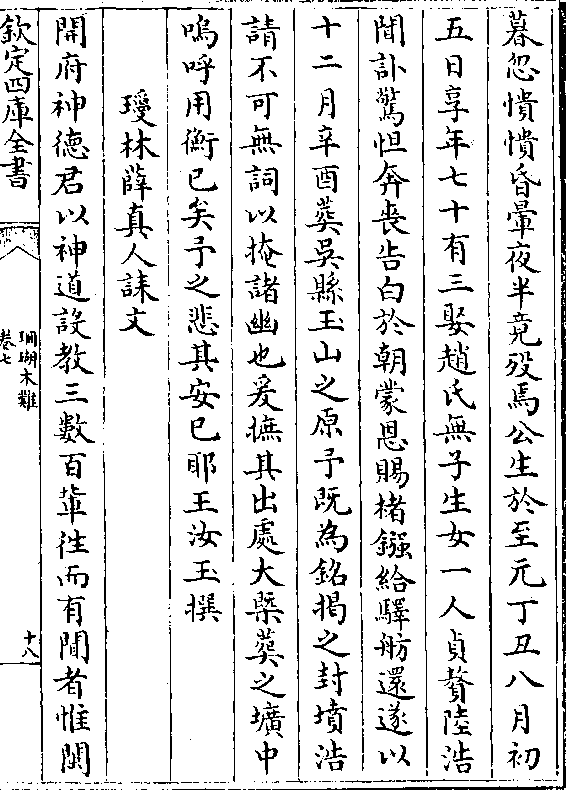 暮忽憒憒昏暈夜半竟殁焉公生於至元丁丑八月初
五日享年七十有三娶趙氏無子生女一人貞贅陸浩
聞訃驚怛奔喪告白於朝蒙恩賜楮鏹給驛舫還遂以
十二月辛酉葬吳縣玉山之原予既為銘掲之封墳浩
請不可無詞以掩諸幽也爰摭其出處大槩葬之壙中
嗚呼用衡已矣予之悲其安已耶王汝玉撰
瓊林薛真人誄文
開府神德君以神道設教三數百軰徃而有聞者惟閩
欽定四庫全書
珊瑚木難
卷七
十八